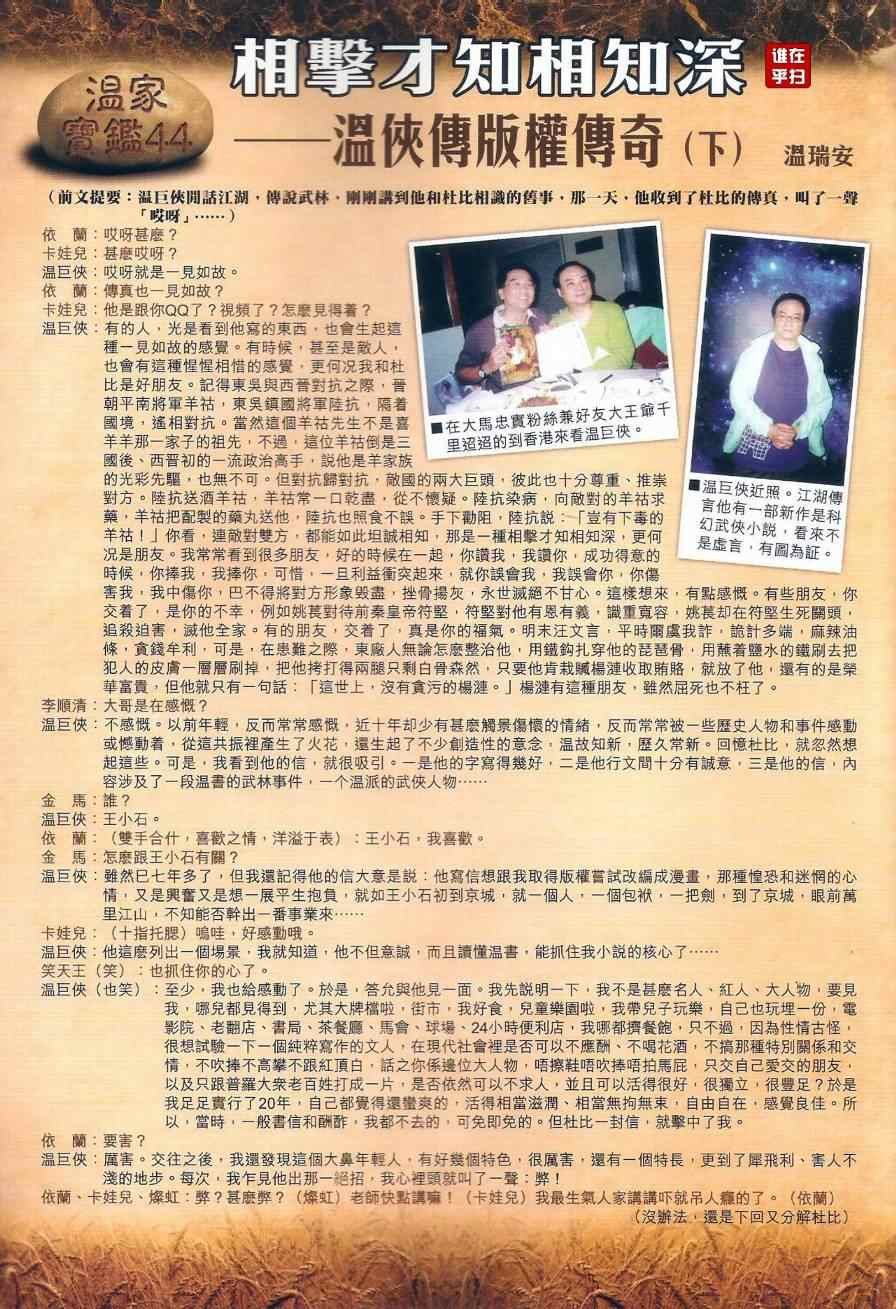 溫家
寶鑑44
相擊才知相知深
誰在
乎扫
——溫俠傳版權傳奇（下）
溫瑞安
（前文提要：溫巨俠閒話江湖，傳說武林，剛剛講到他和杜比相識的舊事，那一天，他收到了杜比的傳真，叫了一聲
「哎呀」……）
依　蘭：哎呀甚麽？
卡娃兒：甚麽哎呀？
溫巨俠：哎呀就是一見如故。
依　蘭：傳真也一見如故？
卡娃兒：他是跟你QQ了？視頻了？怎麽見得着？
溫巨俠：有的人，光是看到他寫的東西，也會生起這
種一見如故的感覺。有時候，甚至是敵人，
也會有這種惺惺相惜的感覺，更何況我和杜
比是好朋友。記得東吳與西晉對抗之際，晉
朝平南將軍羊祜，東吳鎮國將軍陸抗，隔着
國境，遙相對抗。當然這個羊祜先生不是喜
羊羊那一家子的祖先，不過，這位羊祜倒是三
國後、西晉初的一流政治高手，說他是羊家族
的光彩先驅，也無不可。但對抗歸對抗，敵國的兩大巨頭，彼此也十分尊重、推崇
對方。陸抗送酒羊祜，羊祜常一口乾盡，從不懷疑。陸抗染病，向敵對的羊祜求
藥，羊祜把配製的藥丸送他，陸抗也照食不誤。手下勸阻，陸抗説：「豈有下毒的
羊祜！」你看，連敵對雙方，都能如此坦誠相知，那是一種相擊才知相知深，更何
況是朋友。我常常看到很多朋友，好的時候在一起，你讚我，我讚你，成功得意的
時候，你捧我，我捧你，可惜，一旦利益衝突起來，就你誤會我，我誤會你，你傷
害我，我中傷你，巴不得將對方形象毁盡，挫骨揚灰，永世滅絕不甘心。這樣想來，有點感慨。有些朋友，你
交着了，是你的不幸，例如姚萇對待前秦皇帝符堅，符堅對他有恩有義，識重寬容，姚萇却在符堅生死關頭，
追殺迫害，滅他全家。有的朋友，交着了，真是你的福氣。明末汪文言，平時爾虞我詐，詭計多端，麻辣油
條，貪錢牟利，可是，在患難之際，東廠人無論怎麽整治他，用鐵鈎扎穿他的琵琶骨，用蘸着鹽水的鐵刷去把
犯人的皮膚一層層刷掉，把他拷打得兩腿只剩白骨森然，只要他肯栽贓楊漣收取賄賂，就放了他，還有的是榮
華富貴，但他就只有一句話：「這世上，沒有貪污的楊漣。」楊漣有這種朋友，雖然屈死也不枉了。
■在大馬忠實粉絲兼好友大王爺千
里迢迢的到香港來看溫巨俠。
■溫巨俠近照。江湖傳
言他有一部新作是科
幻武俠小説，看來不
是虛言，有圖為証。
李順清：大哥是在感慨？
溫巨俠：不感慨。以前年輕，反而常常感慨，近十年却少有甚麽觸景傷懷的情緒，反而常常被一些歷史人物和事件感動
或憾動着，從這共振裡產生了火花，還生起了不少創造性的意念，溫故知新，歷久常新。回憶杜比，就忽然想
起這些。可是，我看到他的信，就很吸引。一是他的字寫得幾好，二是他行文間十分有誠意，三是他的信，內
容涉及了一段温書的武林事件，一个温派的武俠人物……
金　馬：誰？
溫巨俠：王小石。
依　蘭：（雙手合什，喜歡之情，洋溢于表）：王小石，我喜歡。
金　馬：怎麽跟王小石有關？
溫巨俠：雖然巳七年多了，但我還記得他的信大意是説：他寫信想跟我取得版權嘗試改編成漫畫，那種惶恐和迷惘的心
情，又是興奮又是想一展平生抱負，就如王小石初到京城，就一個人，一個包袱，一把劍，到了京城，眼前萬
里江山，不知能否幹出一番事業來……
卡娃兒：（十指托腮）嗚哇，好感動哦。
溫巨俠：他這麽列出一個場景，我就知道，他不但意誠，而且讀懂温書，能抓住我小説的核心了……
笑天王（笑）：也抓住你的心了。
溫巨俠（也笑）：至少，我也給感動了。於是，答允與他見一面。我先説明一下，我不是甚麽名人、紅人、大人物，要見
我，哪兒都見得到，尤其大牌檔啦，街市，我好食，兒童樂園啦，我帶兒子玩樂，自己也玩埋一份，電
影院、老翻店、書局、茶餐廳、馬會、球場、24小時便利店，我哪都擠餐飽，只不過，因為性情古怪，
很想試驗一下一個純粹寫作的文人，在現代社會裡是否可以不應酬、不喝花酒，不搞那種特別關係和交
情，不吹捧不高攀不跟紅頂白，話之你係邊位大人物，唔擦鞋唔吹捧唔拍馬屁，只交自己愛交的朋友，
以及只跟普羅大衆老百姓打成一片，是否依然可以不求人，並且可以活得很好，很獨立，很豐足？於是
我足足實行了20年，自己都覺得還蠻爽的，活得相當滋潤、相當無拘無束，自由自在，感覺良佳。所
以，當時，一般書信和酬酢，我都不去的，可免即免的。但杜比一封信，就擊中了我。
依　蘭：要害？
溫巨俠：厲害。交往之後，我還發現這個大鼻年輕人，有好幾個特色，很厲害，還有一個特長，更到了犀飛利、害人不
淺的地步。每次，我乍見他出那一絕招，我心裡頭就叫了一聲：弊！
依蘭、卡娃兒、燦虹：弊？甚麽弊？（燦虹）老師快點講嘛！（卡娃兒）我最生氣人家講講吓就吊人癮的了。（依蘭）
（沒辦法，還是下回又分解杜比）